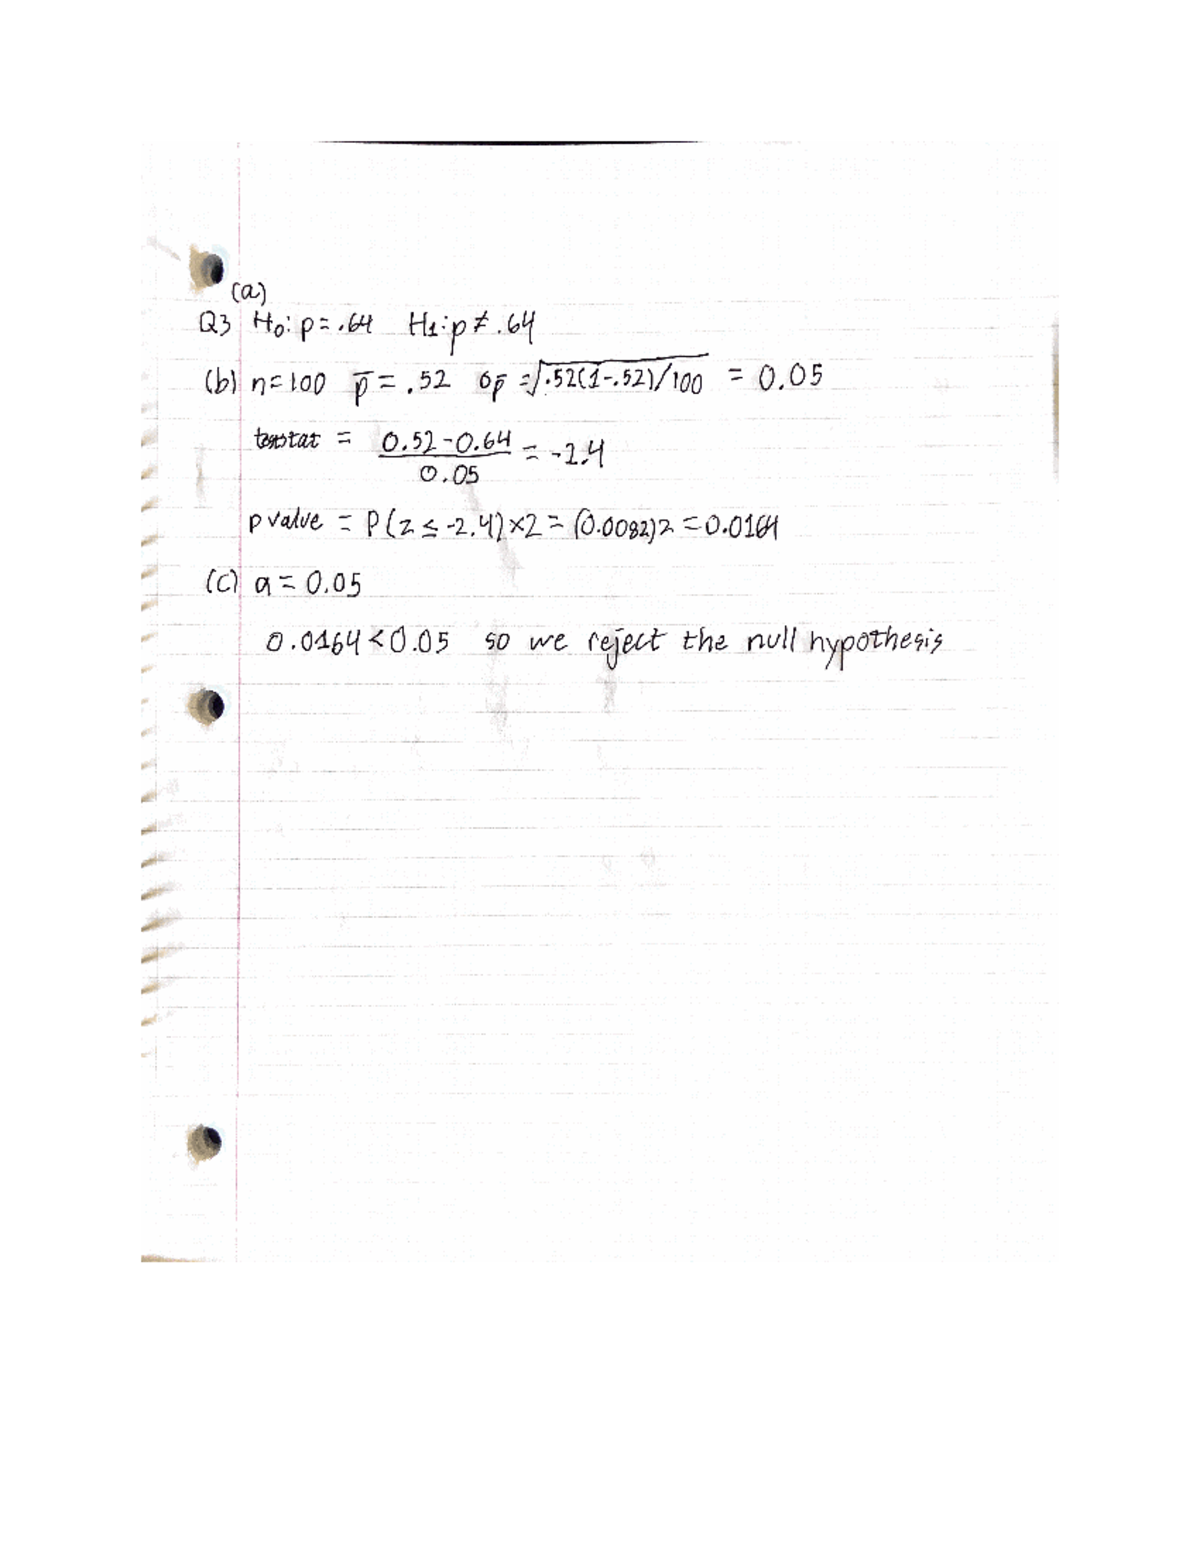 (a)
Q3 H₀: p = .64 H₁: p ≠ .64
(b) n = 100 p̄ = .52 σp̄ = √.52(1-.52)/100 = 0.05
teststat = 0.52-0.64 / 0.05 = -2.4
pvalue = P(z ≤ -2.4)×2 = (0.0082)2 = 0.0164
(c) a = 0.05
0.0164 < 0.05 so we reject the null hypothesis